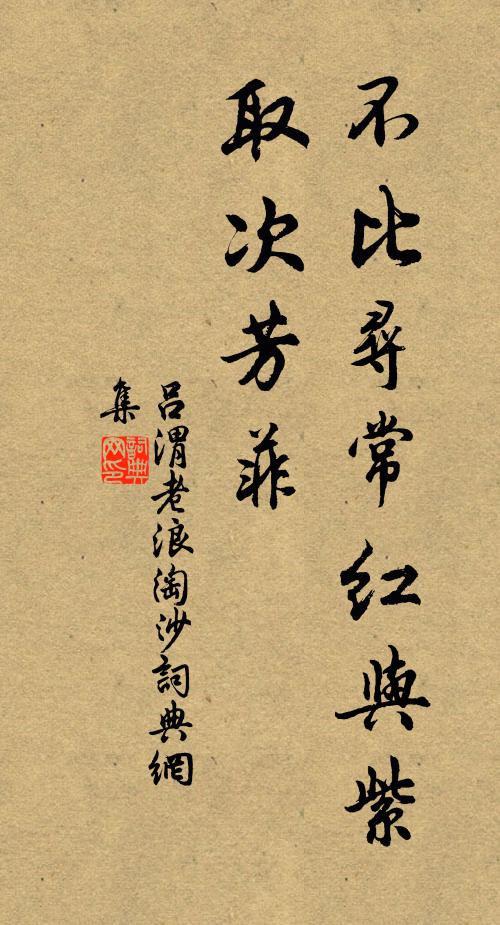 不比尋常紅與紫
取次芳菲
呂渭老浪淘沙詞典網
集
詞典
网印